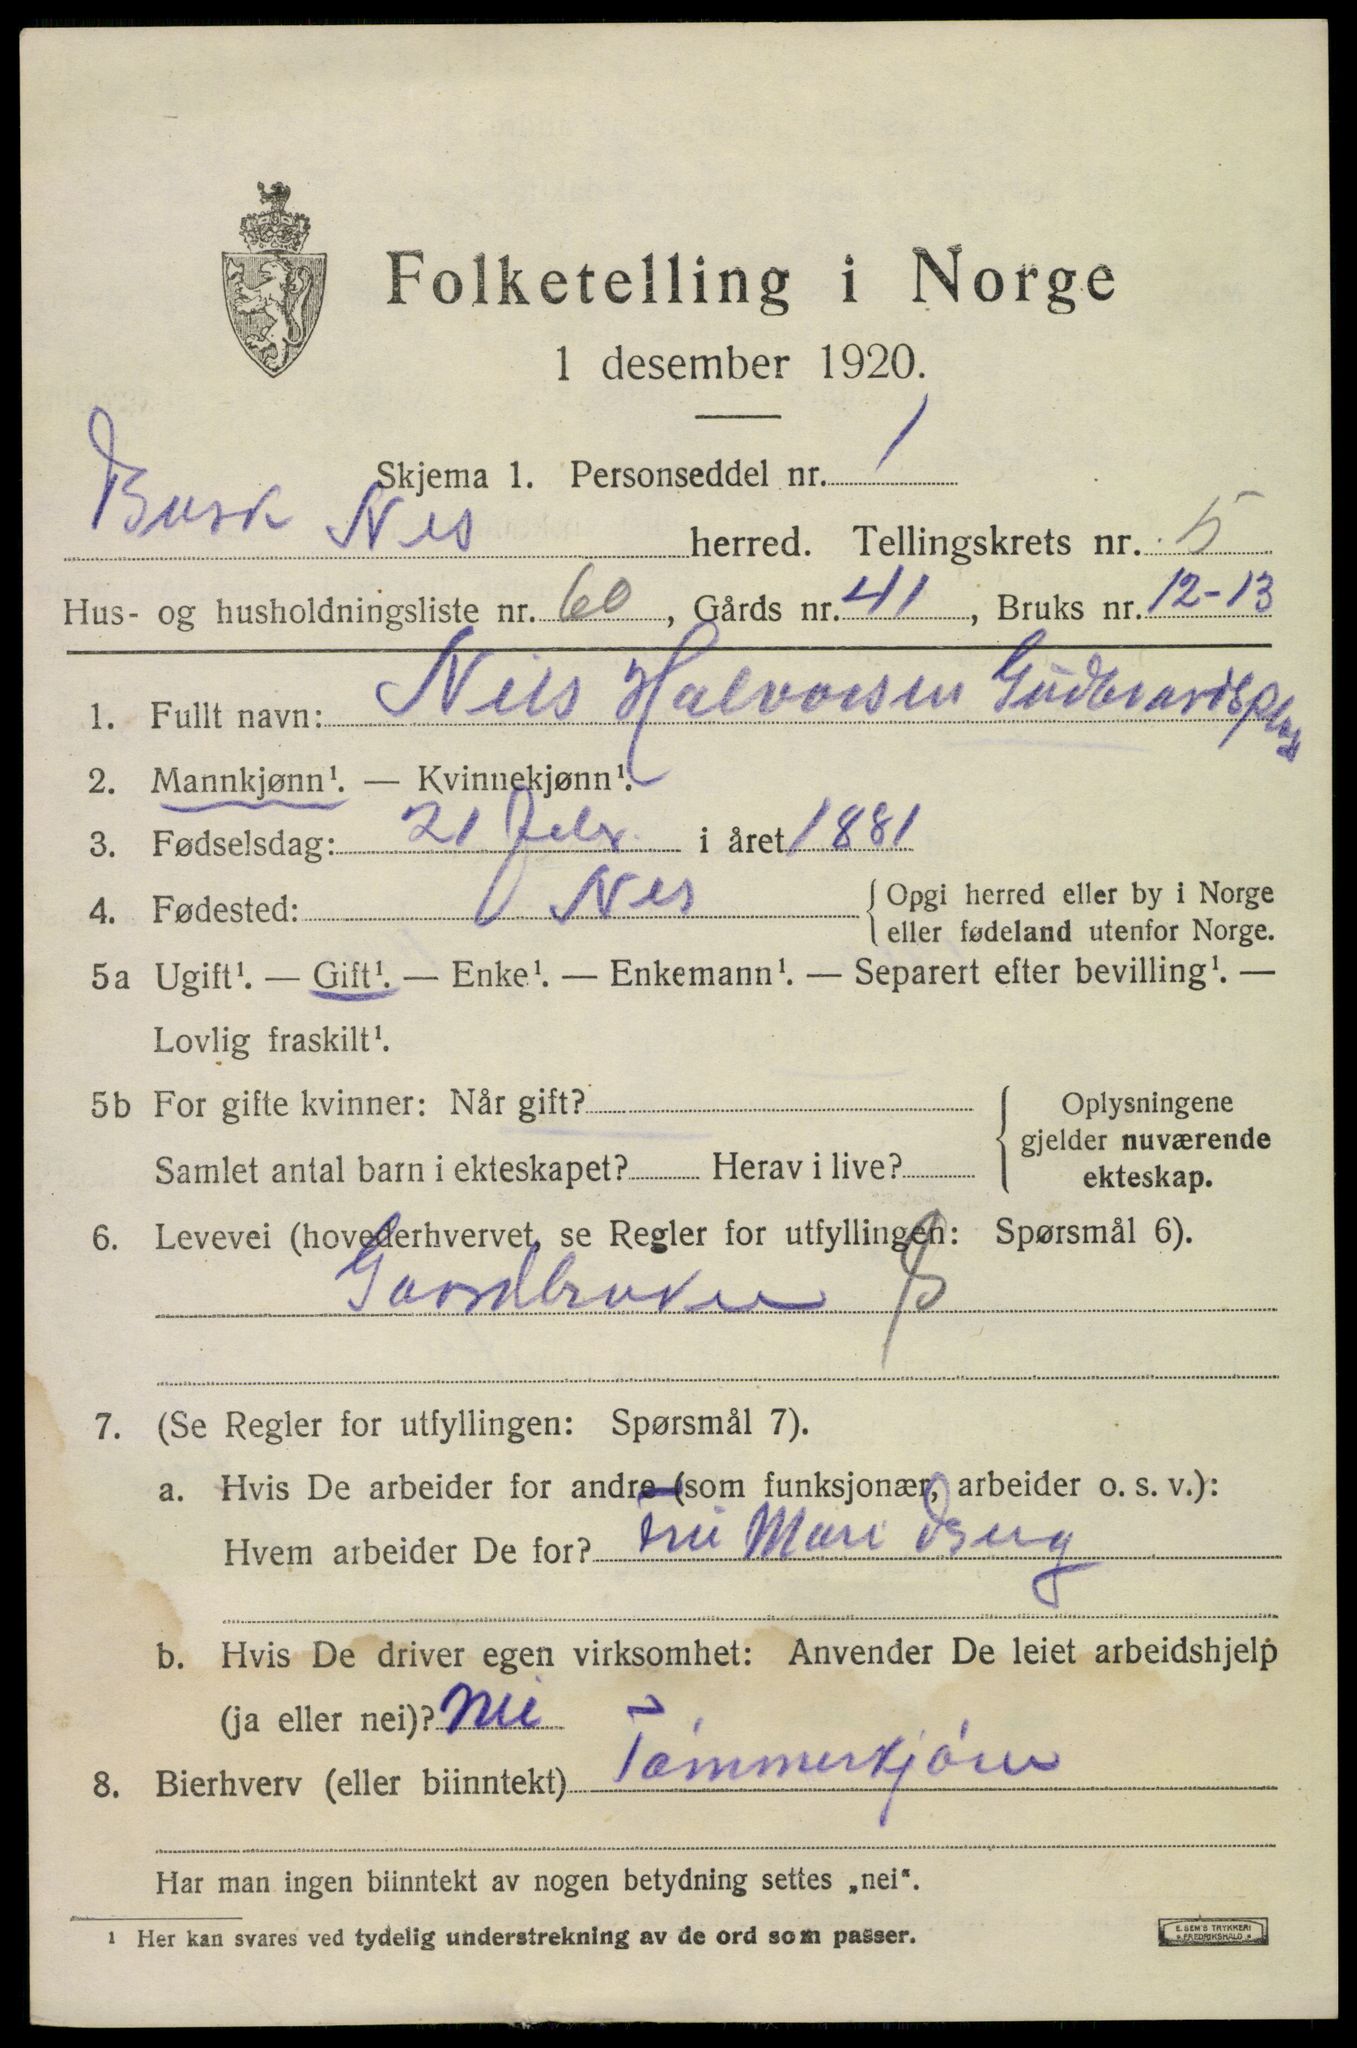 Folketelling i Norge
1 desember 1920.
Skjema 1. Personseddel nr. 1
Busk Nes herred. Tellingskrets nr. 5
Hus- og husholdningsliste nr. 60, Gårds nr. 41, Bruks nr. 12-13
1. Fullt navn: Nils Halvorsen Gudbrandsplas
2. Mannkjønn¹. — Kvinnekjønn¹.
3. Fødselsdag: 21 i året 1881
4. Fødested: Nes
{ Opgi herred eller by i Norge
eller fødeland utenfor Norge.
5a Ugift¹. — Gift¹. — Enke¹. — Enkemann¹. — Separert efter bevilling¹. —
Lovlig fraskilt¹.
5b For gifte kvinner: Når gift?
Samlet antal barn i ekteskapet? Herav i live?
{ Oplysningene
gjelder nuværende
ekteskap.
6. Levevei (hovederhvervet, se Regler for utfyllingen: Spørsmål 6).
Gaardbruker
7. (Se Regler for utfyllingen: Spørsmål 7).
a. Hvis De arbeider for andre (som funksjonær, arbeider o. s. v.):
Hvem arbeider De for? Mari Berg
b. Hvis De driver egen virksomhet: Anvender De leiet arbeidshjelp
(ja eller nei)? nei
8. Bierhverv (eller biinntekt) Tømmerkjører
Har man ingen biinntekt av nogen betydning settes „nei“.
¹ Her kan svares ved tydelig understrekning av de ord som passer.
E. SEM'S TRYKKERI
FREDRIKSHALD